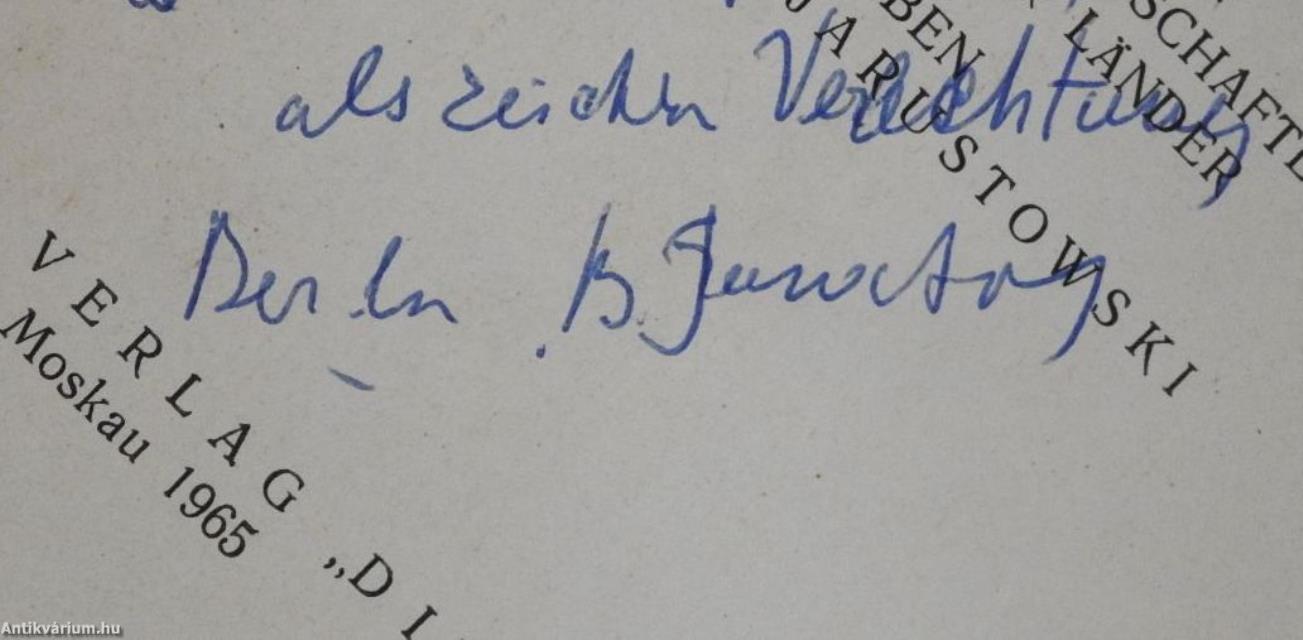 SCHAFTE
LÄNDER
BEN
JARUSTOWSKI
als zeichen Verechtung
Berlin B Jarustow
VERLAG „DI
Moskau 1965
Antikvárium.hu